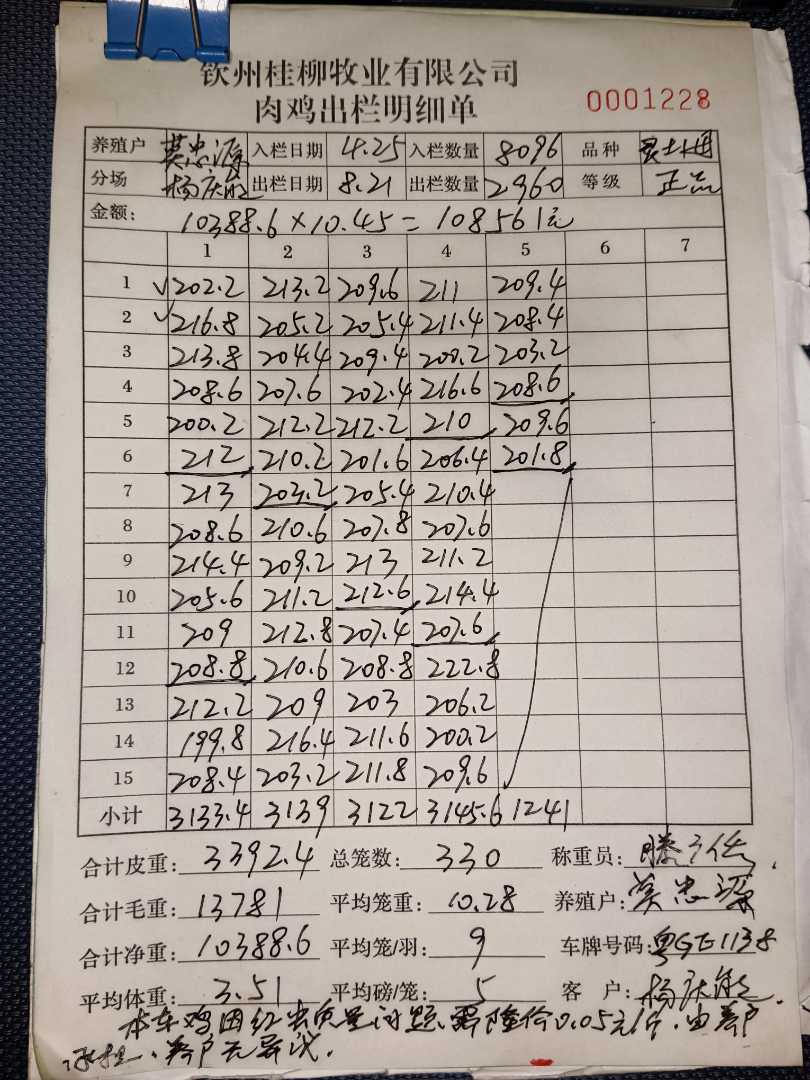 钦州桂柳牧业有限公司
肉鸡出栏明细单
0001228
养殖户 莫忠源 入栏日期 4.25 入栏数量 8096 品种
分场 杨庆 出栏日期 8.21 出栏数量 2960 等级 正品
金额: 10388.6×10.45=108561元
1 2 3 4 5 6 7
1 √202.2 213.2 209.6 211 209.4
2 √216.8 205.2 205.4 211.4 208.4
3 213.8 204.4 209.4 200.2 203.2
4 208.6 207.6 202.4 216.6 208.6
5 200.2 212.2 212.2 210 209.6
6 212 210.2 201.6 206.4 201.8
7 213 203.2 205.4 210.4
8 208.6 210.6 207.8 207.6
9 214.4 209.2 213 211.2
10 205.6 211.2 212.6 214.4
11 209 212.8 207.4 207.6
12 208.8 210.6 208.8 222.8
13 212.2 209 203 206.2
14 199.8 216.4 211.6 200.2
15 208.4 203.2 211.8 209.6
小计 3133.4 3139 3122 3145.6 1241
合计皮重: 3392.4 总笼数: 330 称重员:
合计毛重: 13781 平均笼重: 10.28 养殖户: 莫忠源
合计净重: 10388.6 平均笼/羽: 9 车牌号码: 粤GE1138
平均体重: 3.51 平均磅/笼: 5 客户: 杨庆
本车鸡因红虫质量问题,需降价0.05元/斤.由养户
承担、养户无异议.